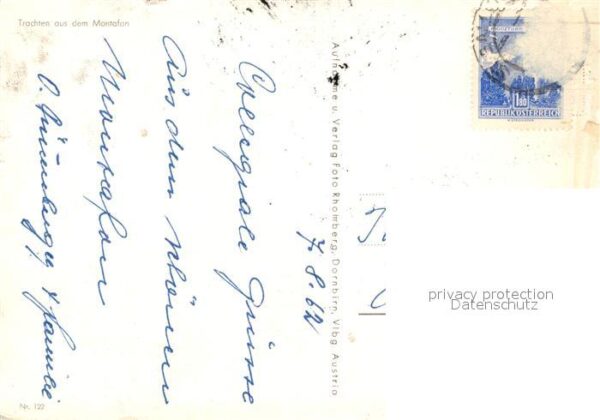 Trachten aus dem Montafon
7. 8. 62
Collegiale Grüsse
aus dem schönen
Montafon
& Familie
Nr. 122
Aufnahme u. Verlag Foto Rhomberg, Dornbirn, Vlbg. Austria
1.80
REPUBLIK ÖSTERREICH
privacy protection
Datenschutz